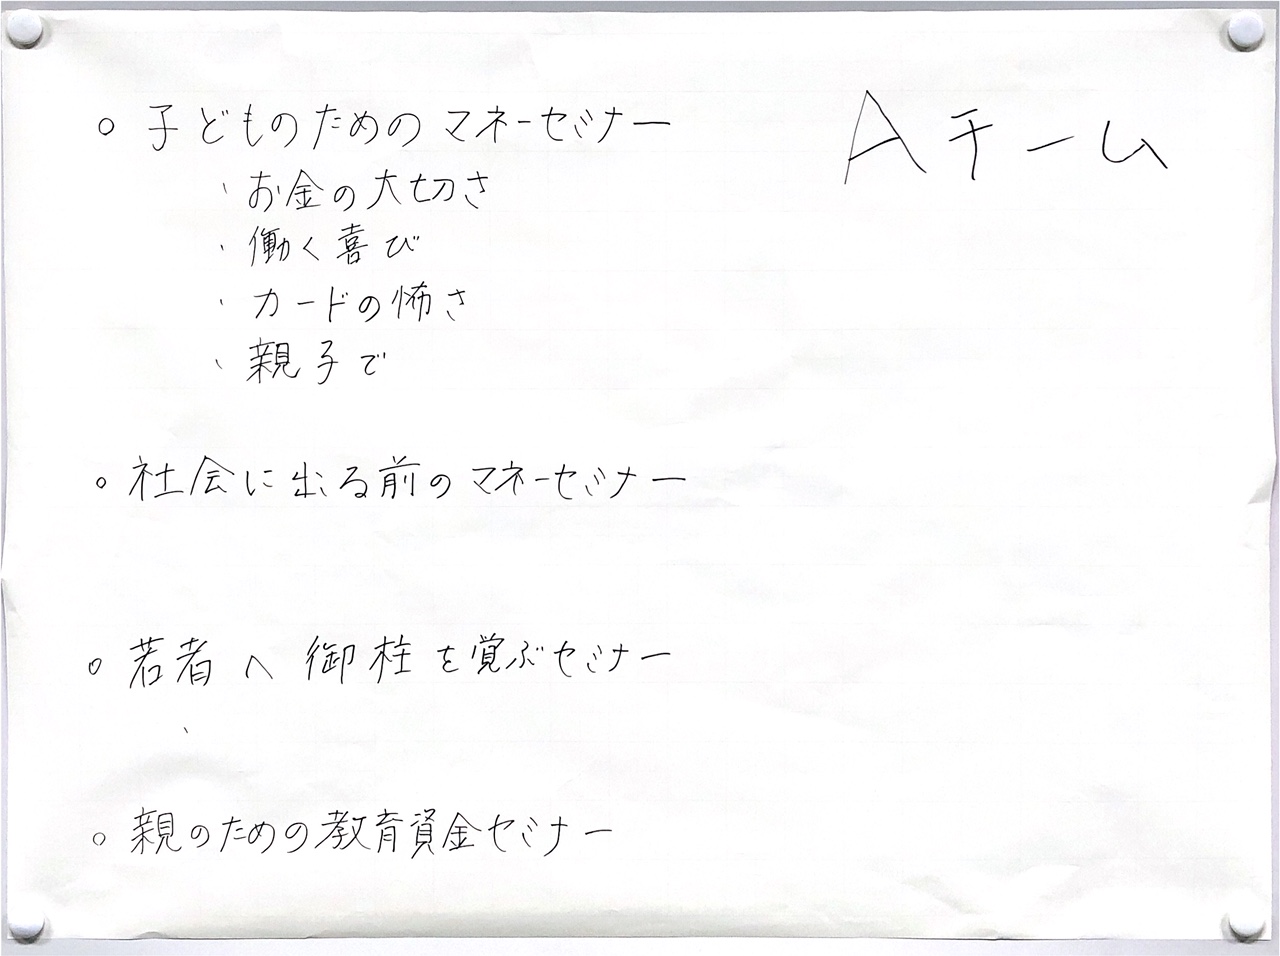 Aチーム
○ 子どものためのマネーセミナー
・お金の大切さ
・働く喜び
・カードの怖さ
・親子で
○ 社会に出る前のマネーセミナー
○ 若者へ 御柱を覚ぶセミナー
・
○ 親のための教育資金セミナー